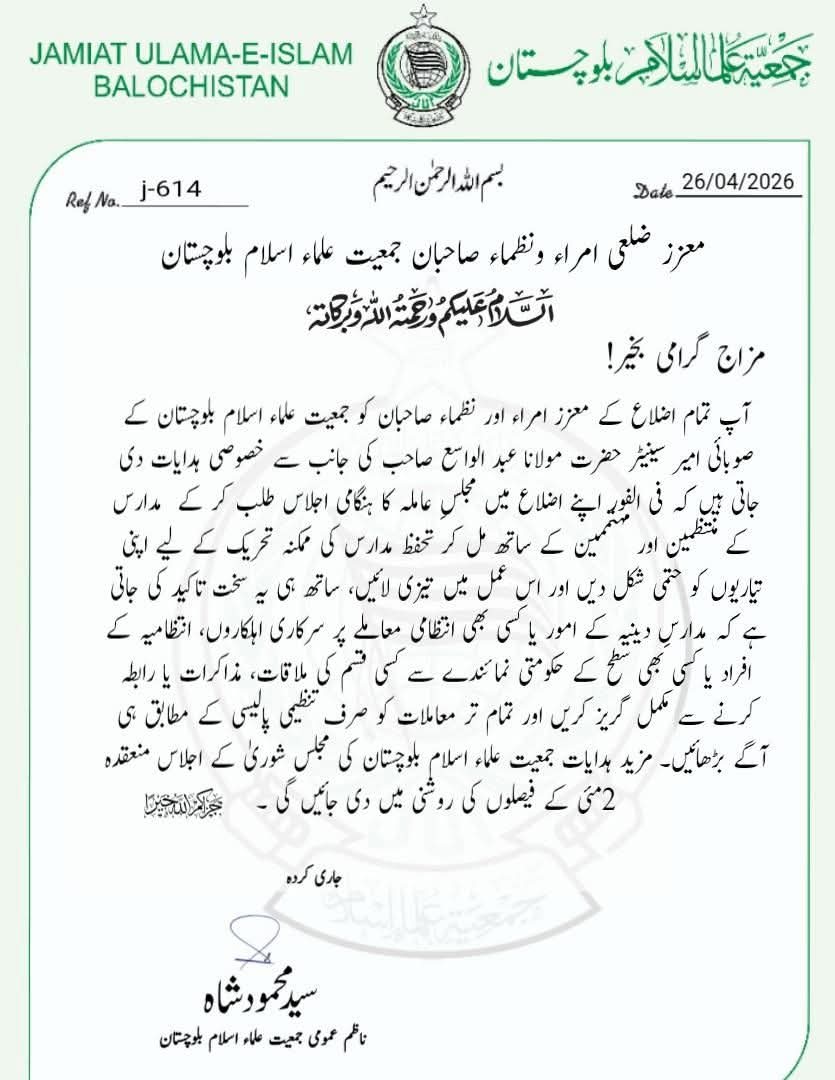 JAMIAT ULAMA-E-ISLAM
BALOCHISTAN
جمعیۃ علماء اسلام بلوچستان
Ref No. j-614
بسم اللہ الرحمٰن الرحیم
Date 26/04/2026
معزز ضلعی امراء ونظماء صاحبان جمعیت علماء اسلام بلوچستان
السلام علیکم ورحمۃ اللہ وبرکاتہ
مزاج گرامی بخیر!
آپ تمام اضلاع کے معزز امراء اور نظماء صاحبان کو جمعیت علماء اسلام بلوچستان کے
صوبائی امیر سینیٹر حضرت مولانا عبد الواسع صاحب کی جانب سے خصوصی ہدایات دی
جاتی ہیں کہ فی الفور اپنے اضلاع میں مجلسِ عاملہ کا ہنگامی اجلاس طلب کر کے مدارس
کے منتظمین اور مہتممین کے ساتھ مل کر تحفظ مدارس کی ممکنہ تحریک کے لیے اپنی
تیاریوں کو حتمی شکل دیں اور اس عمل میں تیزی لائیں، ساتھ ہی یہ سخت تاکید کی جاتی
ہے کہ مدارسِ دینیہ کے امور یا کسی بھی انتظامی معاملے پر سرکاری اہلکاروں، انتظامیہ کے
افراد یا کسی بھی سطح کے حکومتی نمائندے سے کسی قسم کی ملاقات، مذاکرات یا رابطہ
کرنے سے مکمل گریز کریں اور تمام تر معاملات کو صرف تنظیمی پالیسی کے مطابق ہی
آگے بڑھائیں۔ مزید ہدایات جمعیت علماء اسلام بلوچستان کی مجلس شوریٰ کے اجلاس منعقدہ
2مئی کے فیصلوں کی روشنی میں دی جائیں گی ۔ جزاکم اللہ خیرا
جاری کردہ
سید محمود شاہ
ناظم عمومی جمعیت علماء اسلام بلوچستان